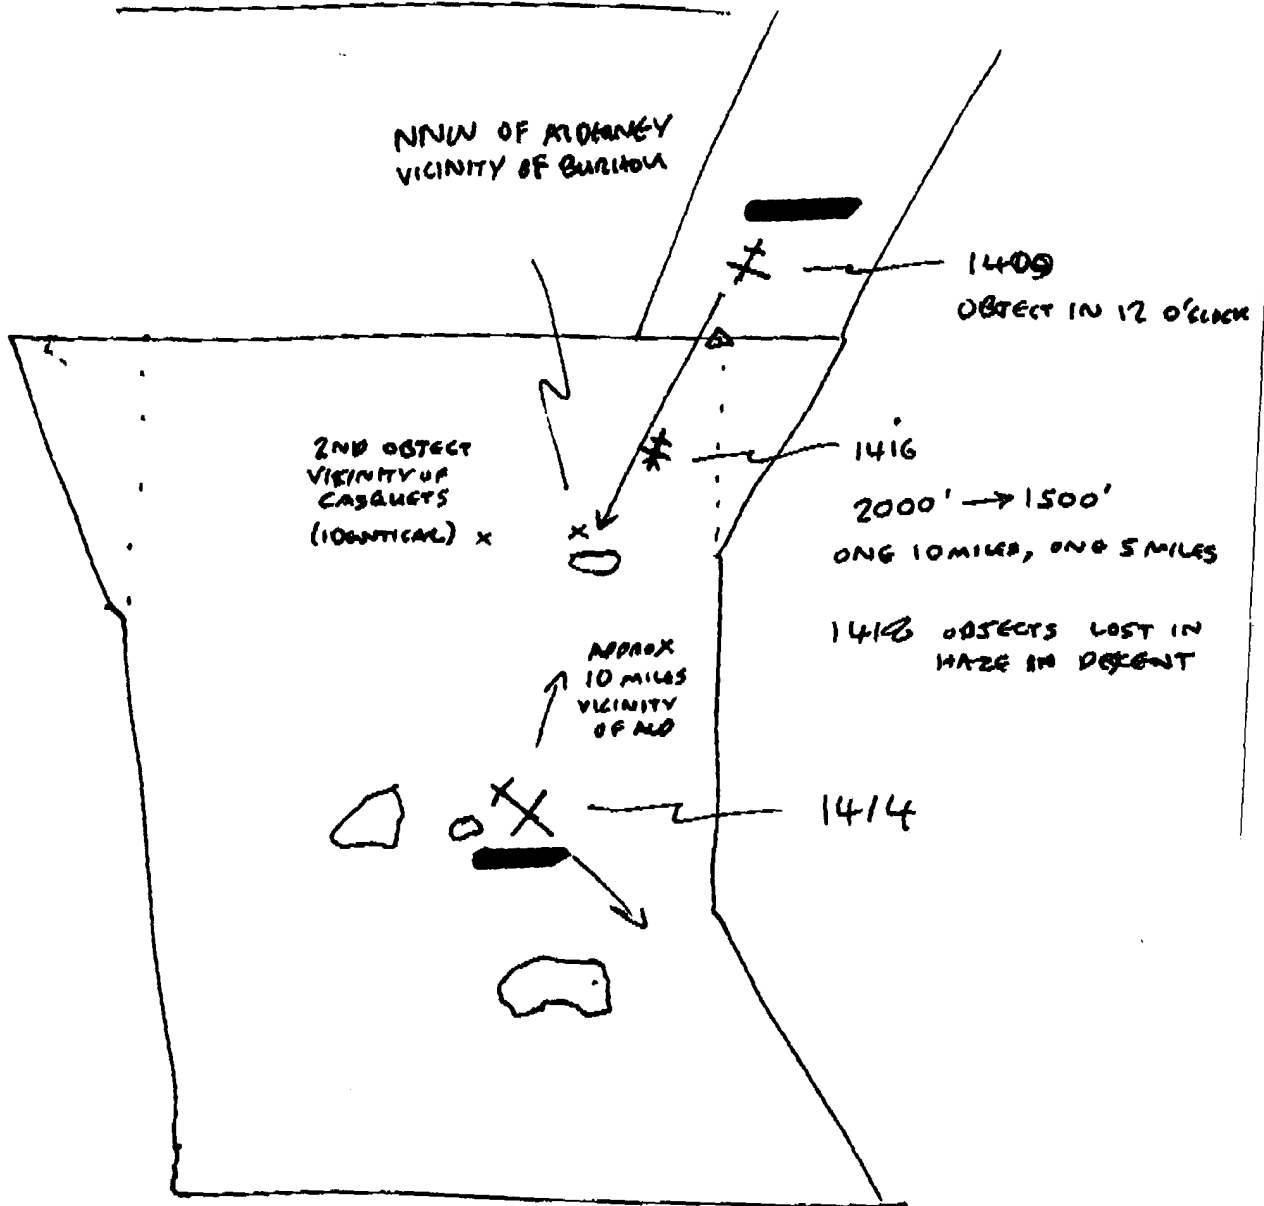 NNW OF ALDERNEY
VICINITY OF BURHOU
1409
OBJECT IN 12 O'CLOCK
2ND OBJECT
VICINITY OF
CASQUETS
(IDENTICAL) x
1416
2000' → 1500'
ONE 10 MILES, ONE 5 MILES
1418 OBJECTS LOST IN
HAZE IN DESCENT
APPROX
10 MILES
VICINITY
OF ALD
1414